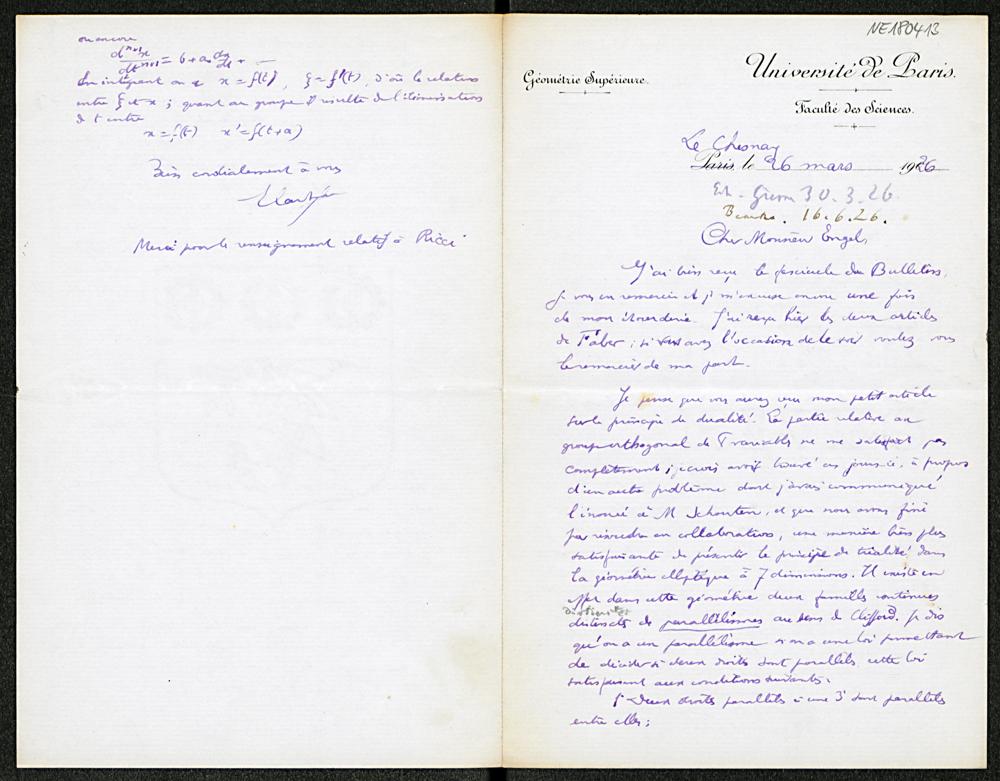 ou encore
dⁿ⁺¹x/dtⁿ⁺¹ = b + a₀ dx/dt + —
En intégrant on a x = f(t), ξ = f'(t), d'où la relation
entre ξ et x ; quant au groupe il résulte de l'élimination
de t entre
x = f(t) x' = f(t+a)
Bien cordialement à vous
E. Cartan
Merci pour le renseignement relatif à Ricci
NE180413
Géométrie Supérieure.
Université de Paris.
Faculté des Sciences.
Le Chesnay
Paris, le 26 mars 1926
30.3.26.
16.6.26.
Cher Monsieur Engel,
J'ai bien reçu le fascicule du Bulletin,
je vous en remercie et je m'excuse encore une fois
de mon étourderie. J'ai reçu hier les deux articles
de Faber ; si vous avez l'occasion de le voir voulez vous
le remercier de ma part.
Je pense que vous aurez vu mon petit article
sur le principe de dualité. La partie relative au
groupe orthogonal de 7 variables ne me satisfait pas
complètement ; je crois avoir trouvé ces jours-ci, à propos
d'un autre problème dont j'avais communiqué
l'énoncé à M. Schouten, et que nous avons fini
par résoudre en collaboration, une manière bien plus
satisfaisante de présenter le principe de trialité dans
la géométrie elliptique à 7 dimensions. Il existe en
effet dans cette géométrie deux familles continues
distinctes de parallélismes au sens de Clifford. Je dis
qu'on a un parallélisme si on a une loi permettant
de décider si deux droites sont parallèles, cette loi
satisfaisant aux conditions suivantes :
1° Deux droites parallèles à une 3e sont parallèles
entre elles ;